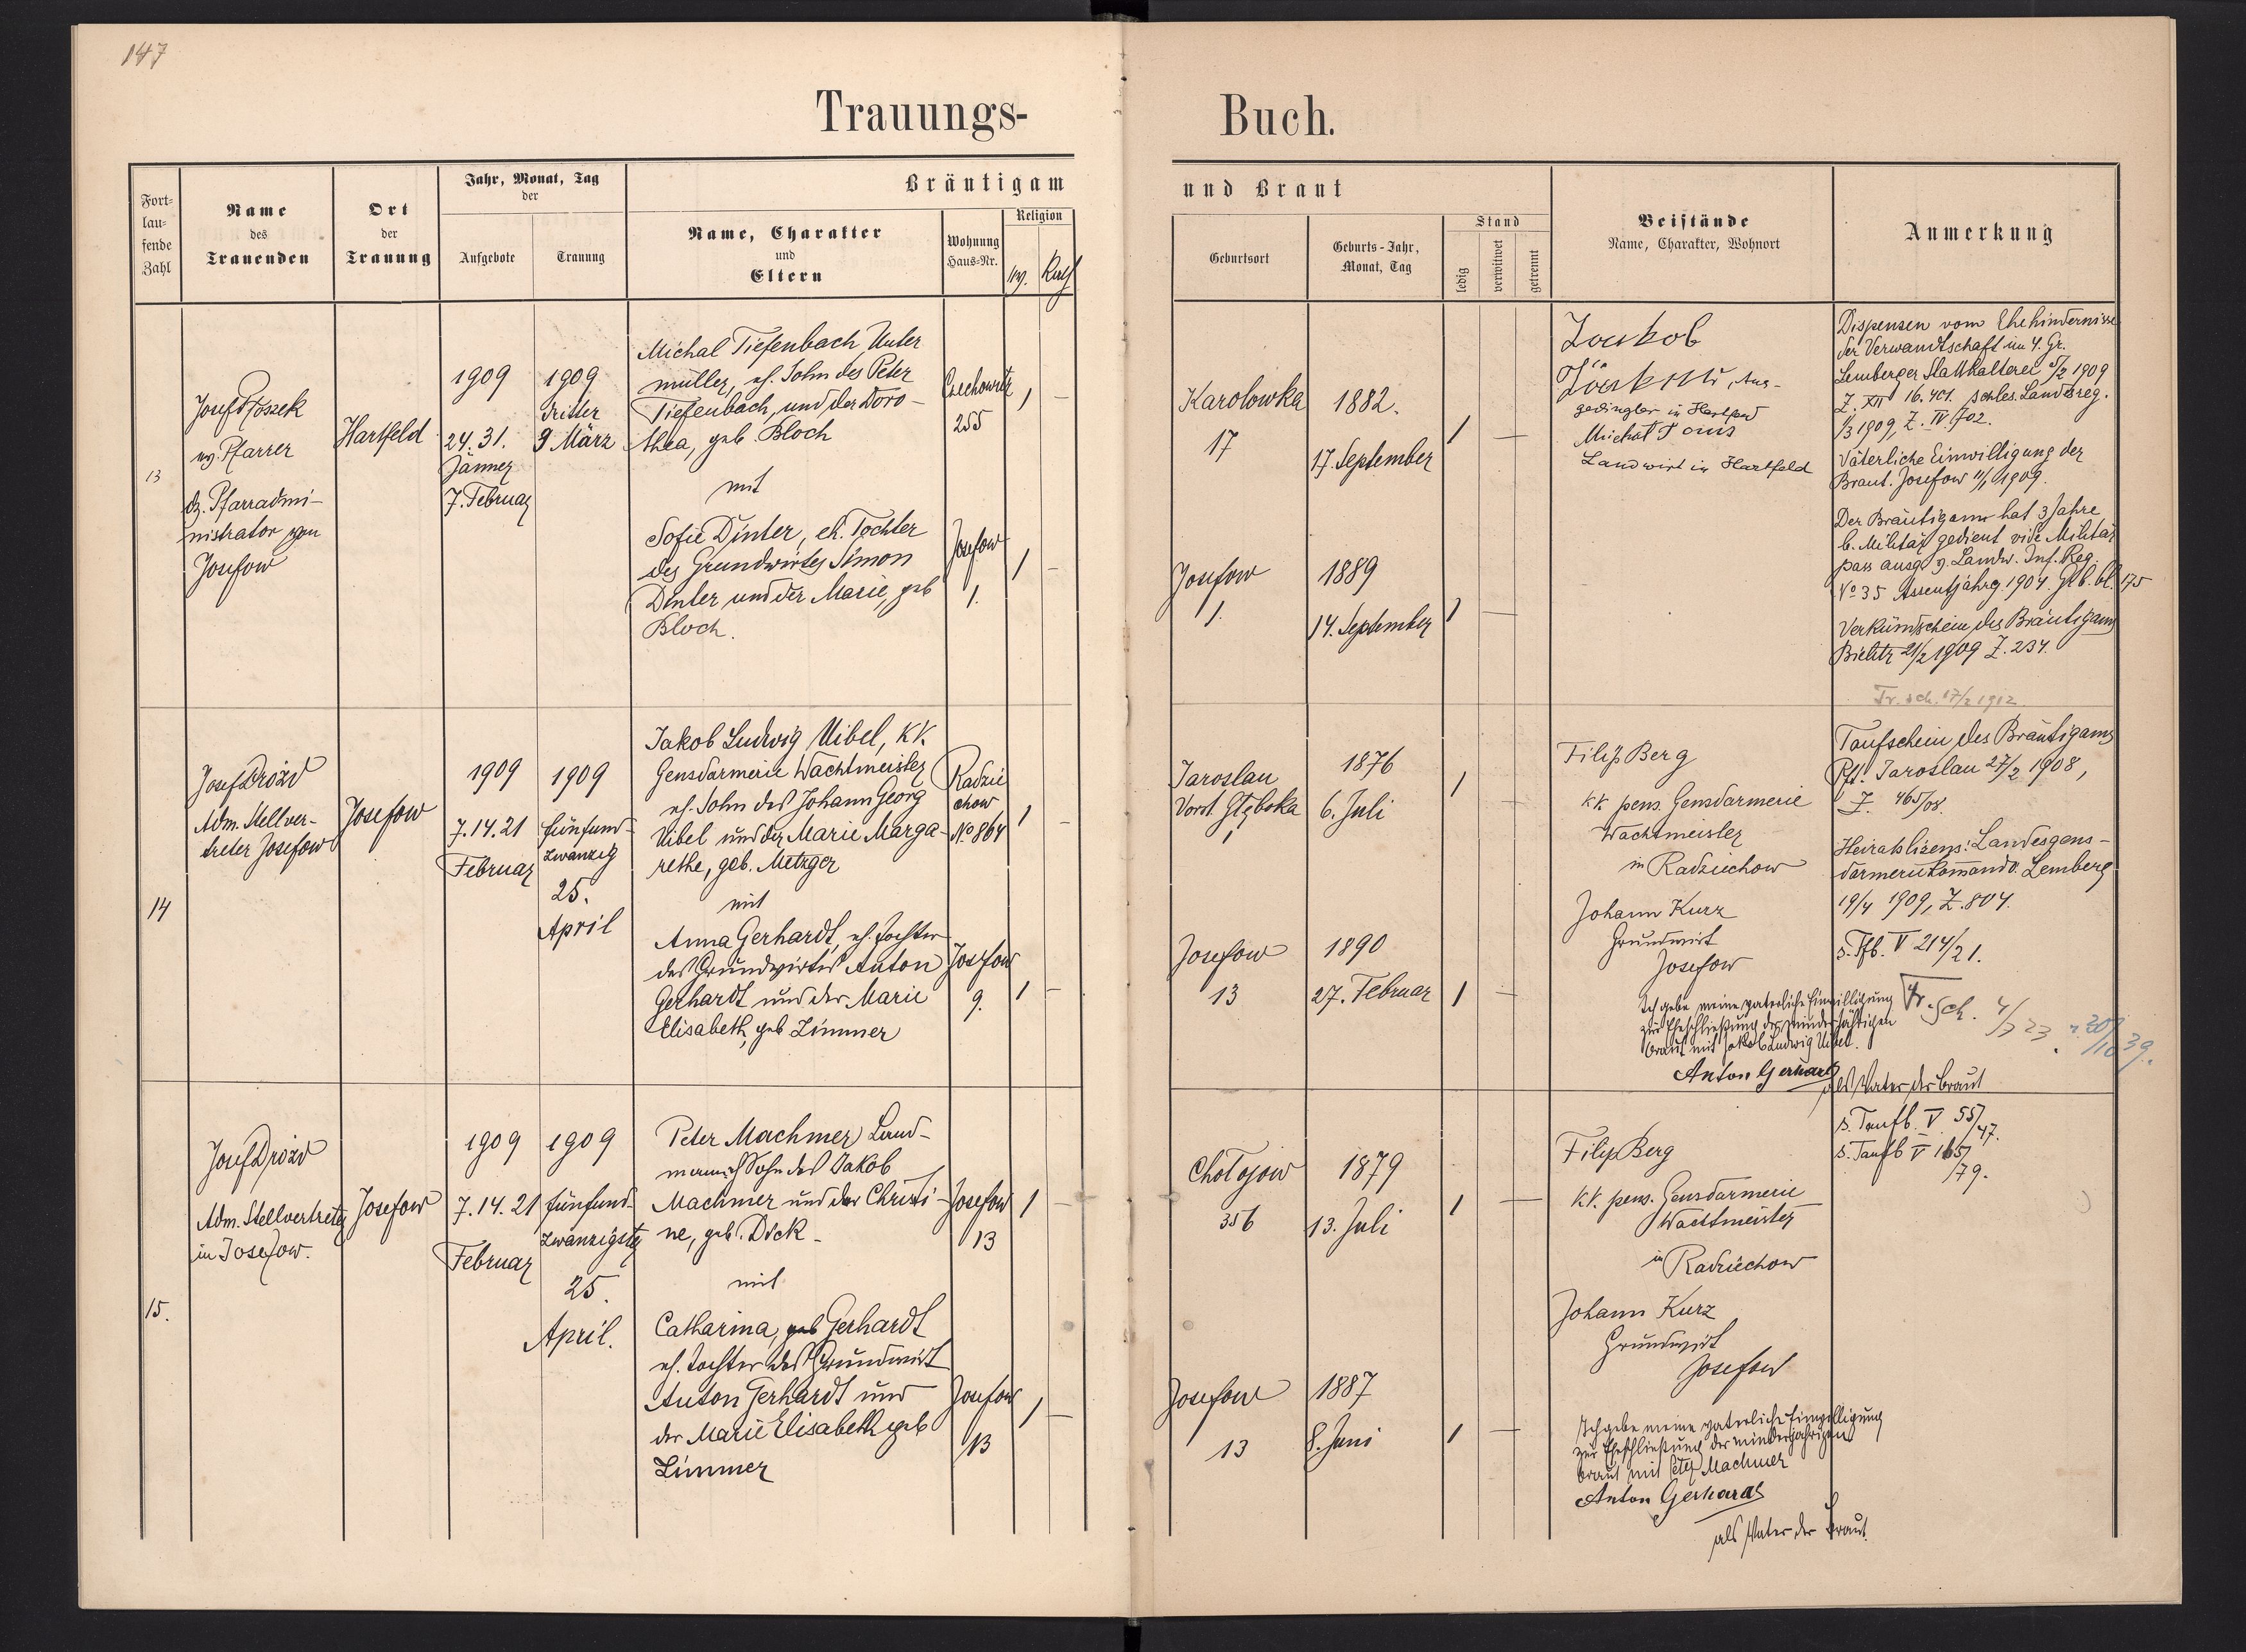 147
Trauungs-
Buch.
Fort-
lau-
fende
Zahl
Name
des
Trauenden
Ort
der
Trauung
Jahr, Monat, Tag
der
Aufgebote
Trauung
Bräutigam
Name, Charakter
und
Eltern
Wohnung
Haus-Nr.
Religion
ev.
Kath
und Braut
Geburtsort
Geburts-Jahr,
Monat, Tag
Stand
ledig
verwitwet
getrennt
Beistände
Name, Charakter, Wohnort
Anmerkung
13
Josef
ev. Pfarrer
dz. Pfarradmi-
nistrator von
Josefow
Hartfeld
1909
24. 31.
Jänner
7. Februar
1909
dritter
3 März
Michal Tiefenbach Unter
müller, eh. Sohn des Peter
Tiefenbach, und der Doro-
thea, geb. Bloch
mit
Sofie Dinter, eh. Tochter
des Grundwirtes Simon
Dinter und der Marie, geb
Bloch.
Czechowitz
255
1
–
Josefow
1.
1
–
Karolowka
17
1882.
17. September
1
—
Josefow
1.
1889
14. September
1
—
gedingler in Hartfeld
Michal
Landwirt in Hartfeld
Dispensen vom Ehehindernisse
der Verwandtschaft im 4. Gr.
Lemberger Statthalterei 5/2 1909
Z. XII 16.401. schles. Landesreg.
1/3 1909, Z. IV. 702.
Väterliche Einwilligung der
Braut. Josefow 11/1 1909.
Der Bräutigam hat 3 Jahre
b. Militär gedient vide Militär
pass ausg. v. Landw. Inf. Reg.
No 35 Assentjahrg. 1904. Grb. bl. 175
Verkündschein des Bräutigams
Bielitz 21/2 1909 Z. 234.
Tr. sch. 17/2 1912
14
Josef Drozd
Adm. Stellver-
treter Josefow
Josefow
1909
7. 14. 21
Februar
1909
fünfund-
zwanzig
25.
April
Jakob Ludwig Uibel, kk.
Gensdarmerie Wachtmeister
eh. Sohn des Johann Georg
Uibel und der Marie Marga-
rethe, geb. Metzger
mit
Anna Gerhardt, eh. Tochter
des Grundwirtes Anton
Gerhardt und der Marie
Elisabeth, geb Zimmer
Radzie
chow
No 864
1
–
Josefow
9.
1
–
Jaroslau
Vorst. Głęboka
1876
6. Juli
1
—
Josefow
13
1890
27. Februar
1
—
Filip Berg
kk pens. Gensdarmerie
Wachtmeister
in Radziechow
Johann Kurz
Grundwirt
Josefow
Ich gebe meine vaterliche Einwilligung
zur Eheschließung der minderjährigen
Braut mit Jakob Ludwig Uibel.
Anton Gerhard
als Vater der Braut
Taufschein des Bräutigams
Pft. Jaroslau 27/2 1908,
Z. 465/08.
Heiratslizens: Landesgens-
darmeriekomando Lemberg
19/4 1909, Z. 804.
s. Tfb. V 214/21.
Tr. Sch. 4/3 23. 20/10 39.
15.
Josef Drozd
Adm. Stellvertreter
in Josefow.
Josefow
1909
7. 14. 21
Februar
1909
fünfund-
zwanzigster
25.
April.
Peter Machmer Land-
mann eh Sohn des Jakob
Machmer und der Christi-
ne, geb. Dick
mit
Catharina, geb Gerhardt
eh. Tochter des Grundwirt
Anton Gerhardt und
der Marie Elisabeth geb
Zimmer
Josefow
13
1
–
Josefow
13
1
—
Chołojow
356
1879
13. Juli
1
—
Josefow
13
1887
8. Juni
1
—
Filip Berg
kk. pens. Gensdarmerie
Wachtmeister
in Radziechow
Johann Kurz
Grundwirt
Josefow
Ich gebe meine vaterliche Einwilligung
zur Eheschließung der minderjährigen
Braut mit Peter Machmer
Anton Gerhard
als Vater der Braut.
s. Taufb. V 55/47.
s. Taufb V 165/79.